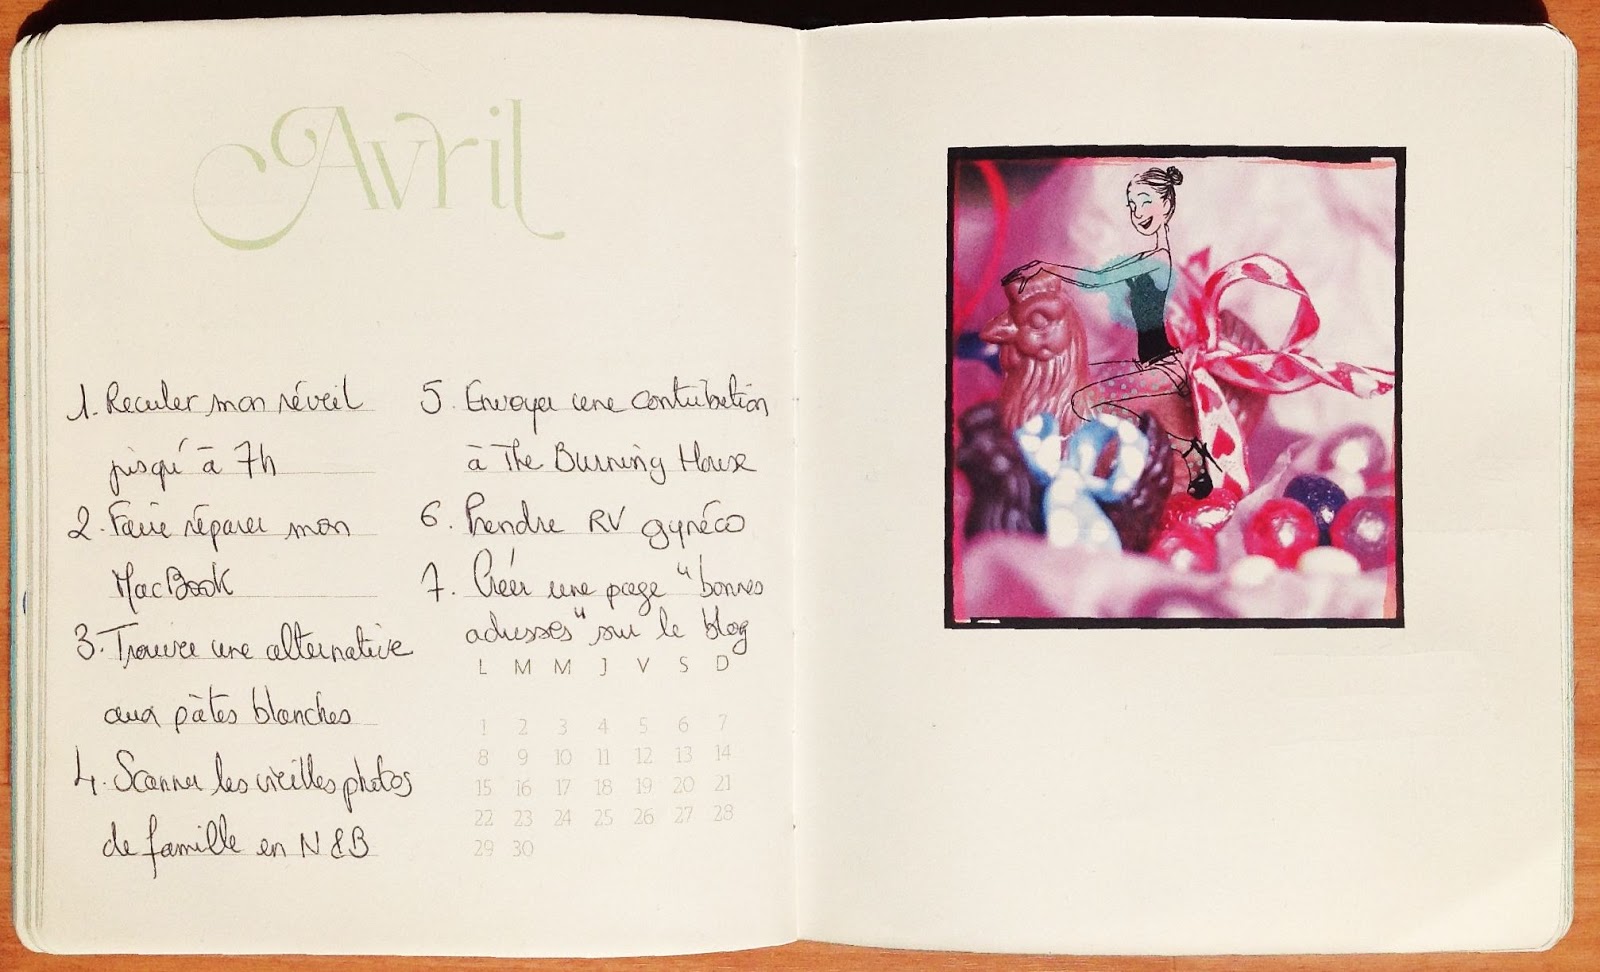 Avril
1. Reculer mon réveil
jusqu'à 7h
2. Faire réparer mon
MacBook
3. Trouver une alternative
aux pâtes blanches
4. Scanner les vieilles photos
de famille en N&B
5. Envoyer une contribution
à The Burning House
6. Prendre RV gynéco
7. Créer une page "bonnes
adresses" sur le blog
L M M J V S D
1 2 3 4 5 6 7
8 9 10 11 12 13 14
15 16 17 18 19 20 21
22 23 24 25 26 27 28
29 30